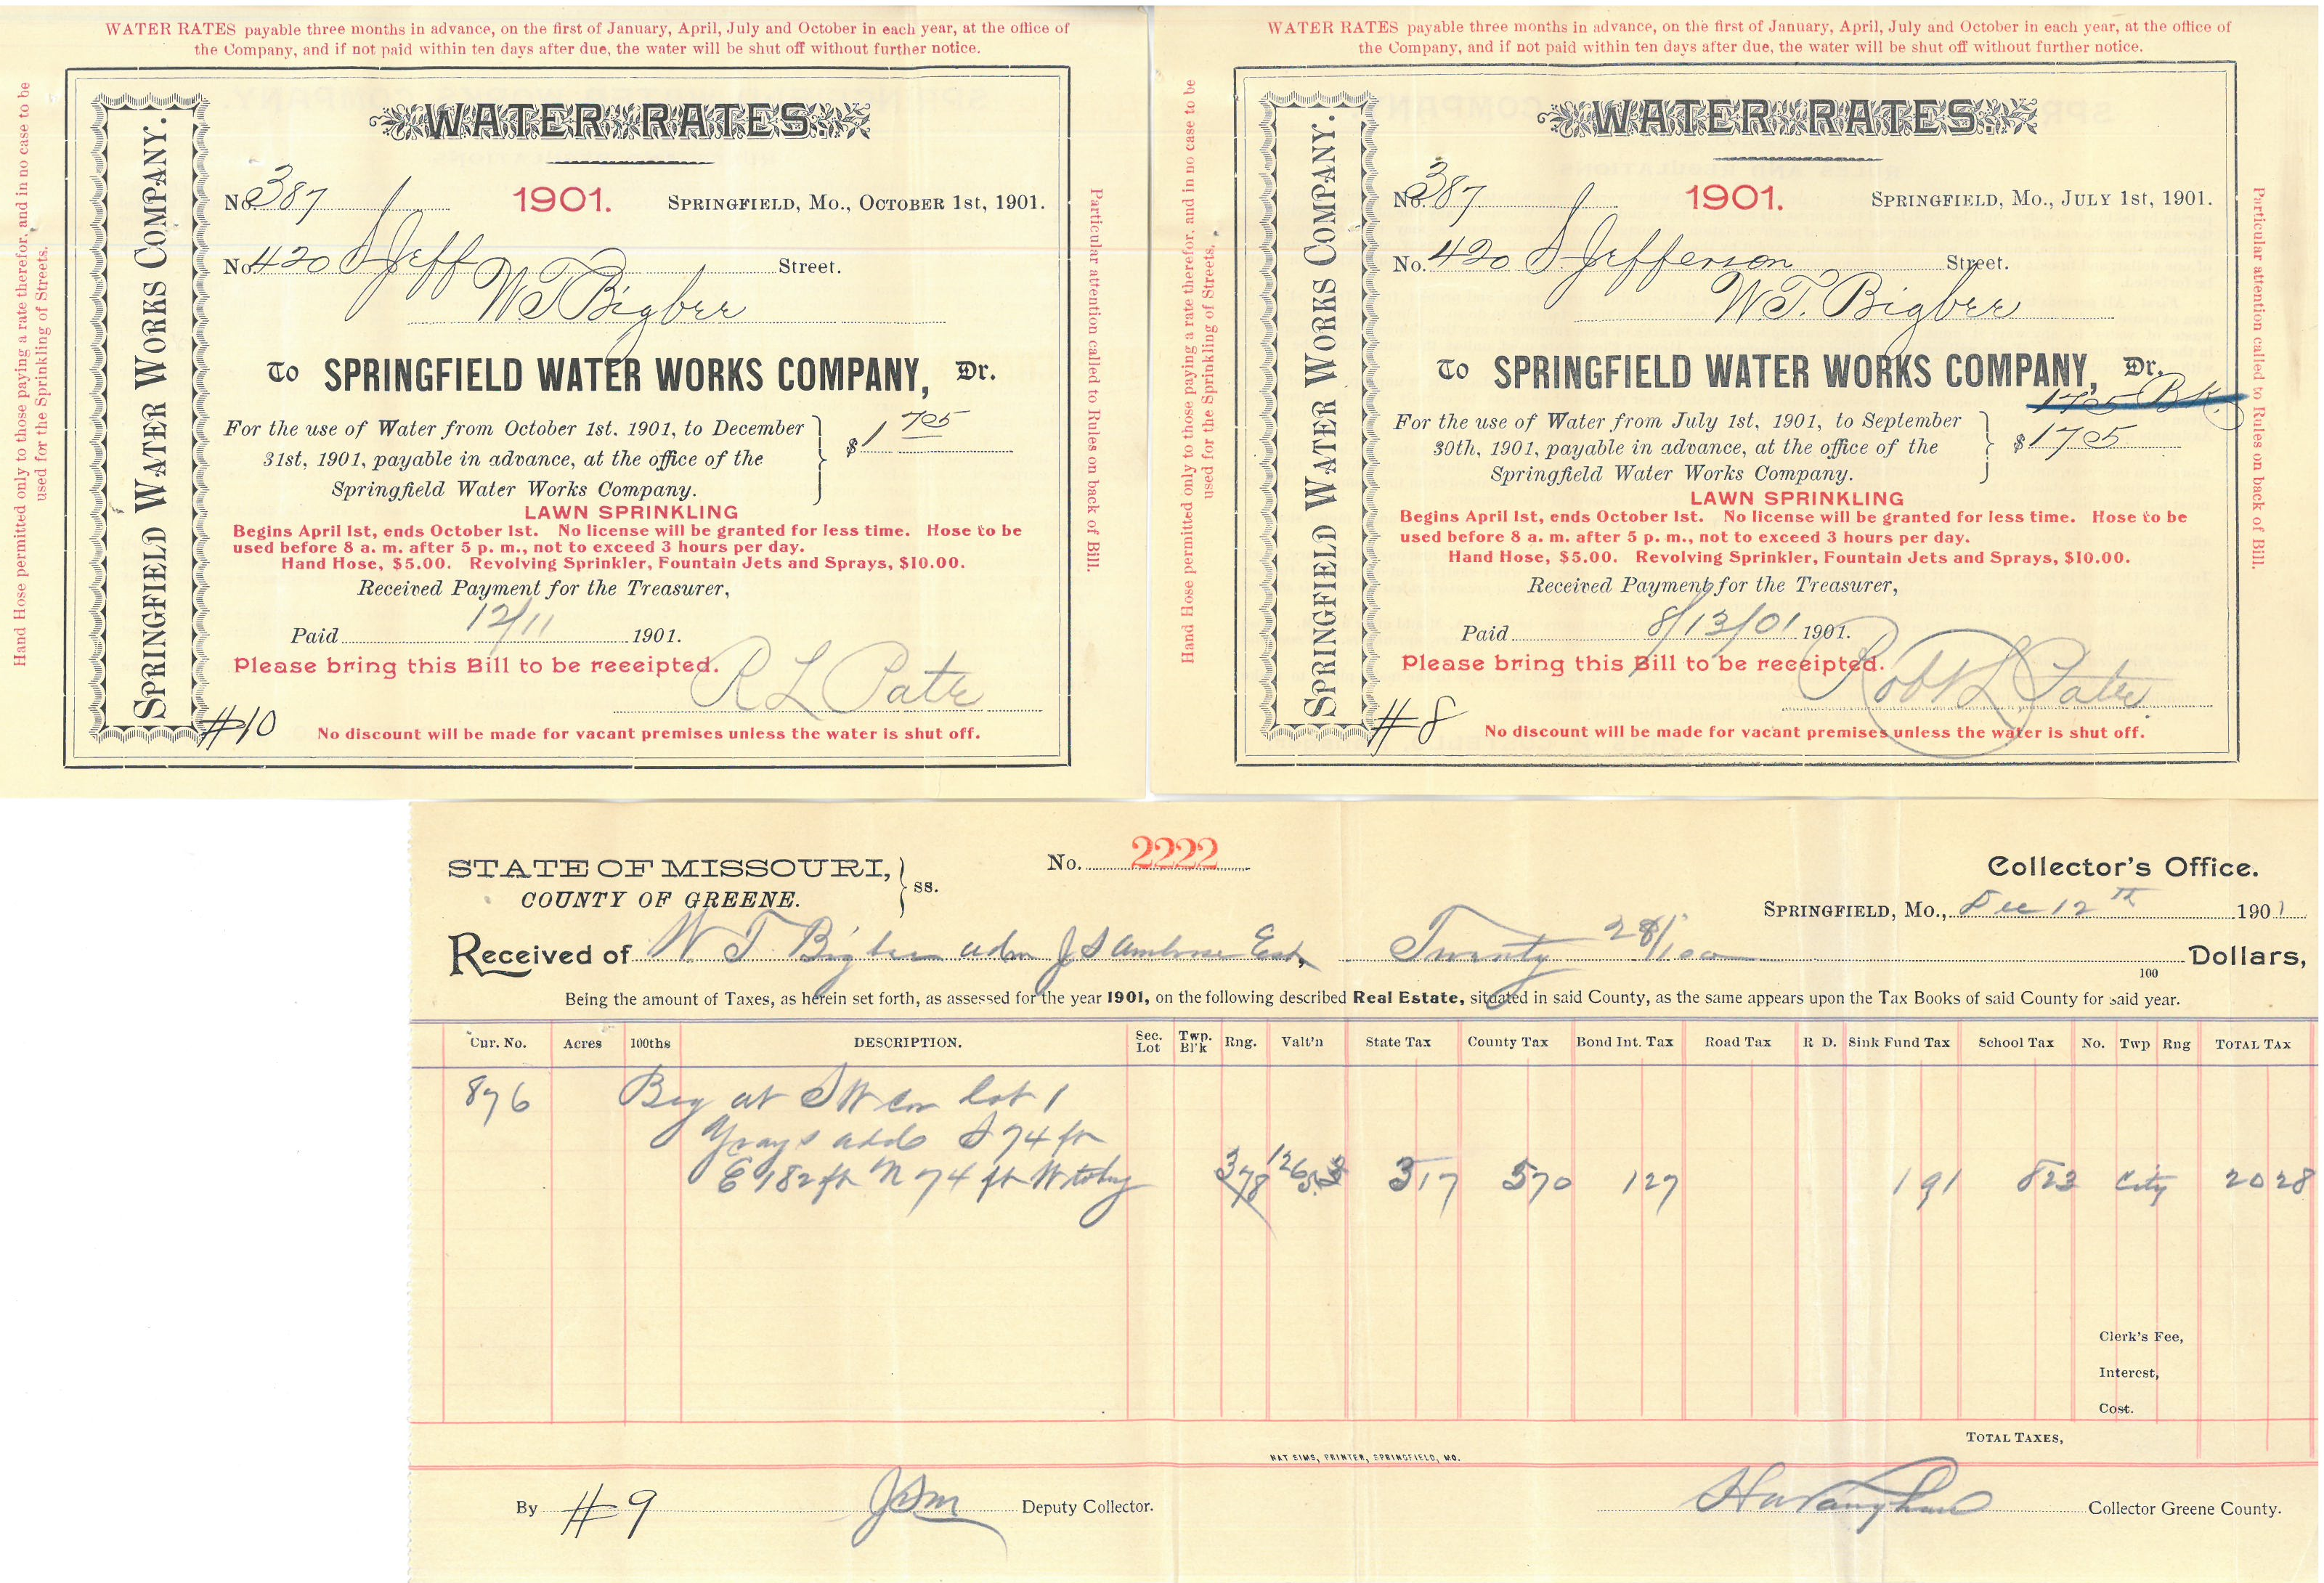 WATER RATES payable three months in advance, on the first of January, April, July and October in each year, at the office of
the Company, and if not paid within ten days after due, the water will be shut off without further notice.
Hand Hose permitted only to those paying a rate therefor, and in no case to be
used for the Sprinkling of Streets.
SPRINGFIELD WATER WORKS COMPANY.
WATER RATES
No. 387 1901. SPRINGFIELD, MO., OCTOBER 1st, 1901.
No. 420 S Jeff Street.
W T Bigbee
To SPRINGFIELD WATER WORKS COMPANY, Dr.
For the use of Water from October 1st, 1901, to December
31st, 1901, payable in advance, at the office of the
Springfield Water Works Company.
$1 705
LAWN SPRINKLING
Begins April 1st, ends October 1st. No license will be granted for less time. Hose to be
used before 8 a. m. after 5 p. m., not to exceed 3 hours per day.
Hand Hose, $5.00. Revolving Sprinkler, Fountain Jets and Sprays, $10.00.
Received Payment for the Treasurer,
Paid 12/11 1901.
Please bring this Bill to be receipted.
R L Pate
#10
No discount will be made for vacant premises unless the water is shut off.
Particular attention called to Rules on back of Bill.
WATER RATES payable three months in advance, on the first of January, April, July and October in each year, at the office of
the Company, and if not paid within ten days after due, the water will be shut off without further notice.
Hand Hose permitted only to those paying a rate therefor, and in no case to be
used for the Sprinkling of Streets.
SPRINGFIELD WATER WORKS COMPANY.
WATER RATES
No. 387 1901. SPRINGFIELD, MO., JULY 1st, 1901.
No. 420 S. Jefferson Street.
W. T. Bigbee
To SPRINGFIELD WATER WORKS COMPANY, Dr.
1705 BK.
For the use of Water from July 1st, 1901, to September
30th, 1901, payable in advance, at the office of the
Springfield Water Works Company.
$1705
LAWN SPRINKLING
Begins April 1st, ends October 1st. No license will be granted for less time. Hose to be
used before 8 a. m. after 5 p. m., not to exceed 3 hours per day.
Hand Hose, $5.00. Revolving Sprinkler, Fountain Jets and Sprays, $10.00.
Received Payment for the Treasurer,
Paid 8/13/01 1901.
Please bring this Bill to be receipted.
Robt L Pate
#8
No discount will be made for vacant premises unless the water is shut off.
Particular attention called to Rules on back of Bill.
STATE OF MISSOURI, ss. No. 2222 Collector's Office.
COUNTY OF GREENE.
SPRINGFIELD, MO., Dec 12th 1901
Received of W. T. Bigbee adm J S Ambrose Est, Twenty 28/100 Dollars,
100
Being the amount of Taxes, as herein set forth, as assessed for the year 1901, on the following described Real Estate, situated in said County, as the same appears upon the Tax Books of said County for said year.
Cur. No. Acres 100ths DESCRIPTION. Sec. Lot Twp. Bl'k Rng. Valt'n State Tax County Tax Bond Int. Tax Road Tax R D. Sink Fund Tax School Tax No. Twp Rng TOTAL TAX
876 Beg at SW cor Lot 1
Grays add S 74 ft
E 182 ft N 74 ft W to beg 378 3 17 5 70 1 27 1 91 8 23 City 20 28
Clerk's Fee,
Interest,
Cost.
TOTAL TAXES,
NAT SIMS, PRINTER, SPRINGFIELD, MO.
By #9 Deputy Collector.
Collector Greene County.